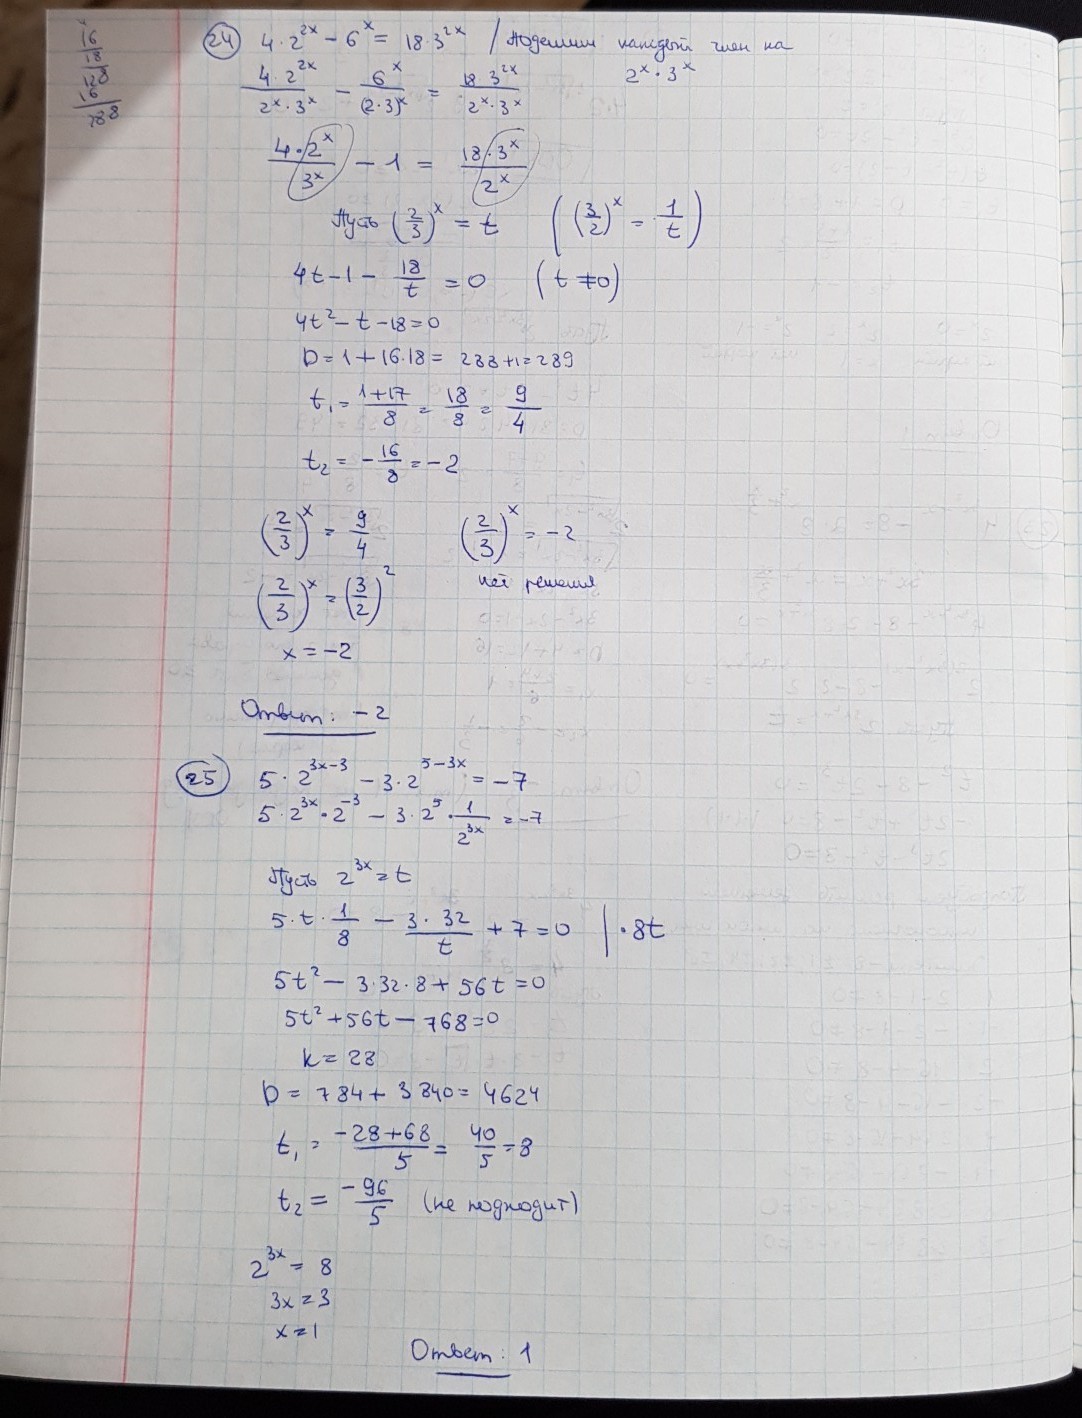 16
18
128
16
288
24 4·2^{2x} − 6^x = 18·3^{2x} / Поделим каждый член на 2^x·3^x
\frac{4·2^{2x}}{2^x·3^x} − \frac{6^x}{(2·3)^x} = \frac{18·3^{2x}}{2^x·3^x}
\frac{4·2^x}{3^x} − 1 = \frac{18·3^x}{2^x}
Пусть (\frac{2}{3})^x = t ((\frac{3}{2})^x = \frac{1}{t})
4t − 1 − \frac{18}{t} = 0 (t ≠ 0)
4t² − t − 18 = 0
D = 1 + 16·18 = 288 + 1 = 289
t₁ = \frac{1+17}{8} = \frac{18}{8} = \frac{9}{4}
t₂ = −\frac{16}{8} = −2
(\frac{2}{3})^x = \frac{9}{4} (\frac{2}{3})^x = −2
(\frac{2}{3})^x = (\frac{3}{2})^2 нет решения
x = −2
Ответ: −2
25 5·2^{3x−3} − 3·2^{5−3x} = −7
5·2^{3x}·2^{−3} − 3·2^5·\frac{1}{2^{3x}} = −7
Пусть 2^{3x} = t
5·t·\frac{1}{8} − \frac{3·32}{t} + 7 = 0 | ·8t
5t² − 3·32·8 + 56t = 0
5t² + 56t − 768 = 0
k = 28
D = 784 + 3840 = 4624
t₁ = \frac{−28+68}{5} = \frac{40}{5} = 8
t₂ = \frac{−96}{5} (не подходит)
2^{3x} = 8
3x = 3
x = 1
Ответ: 1